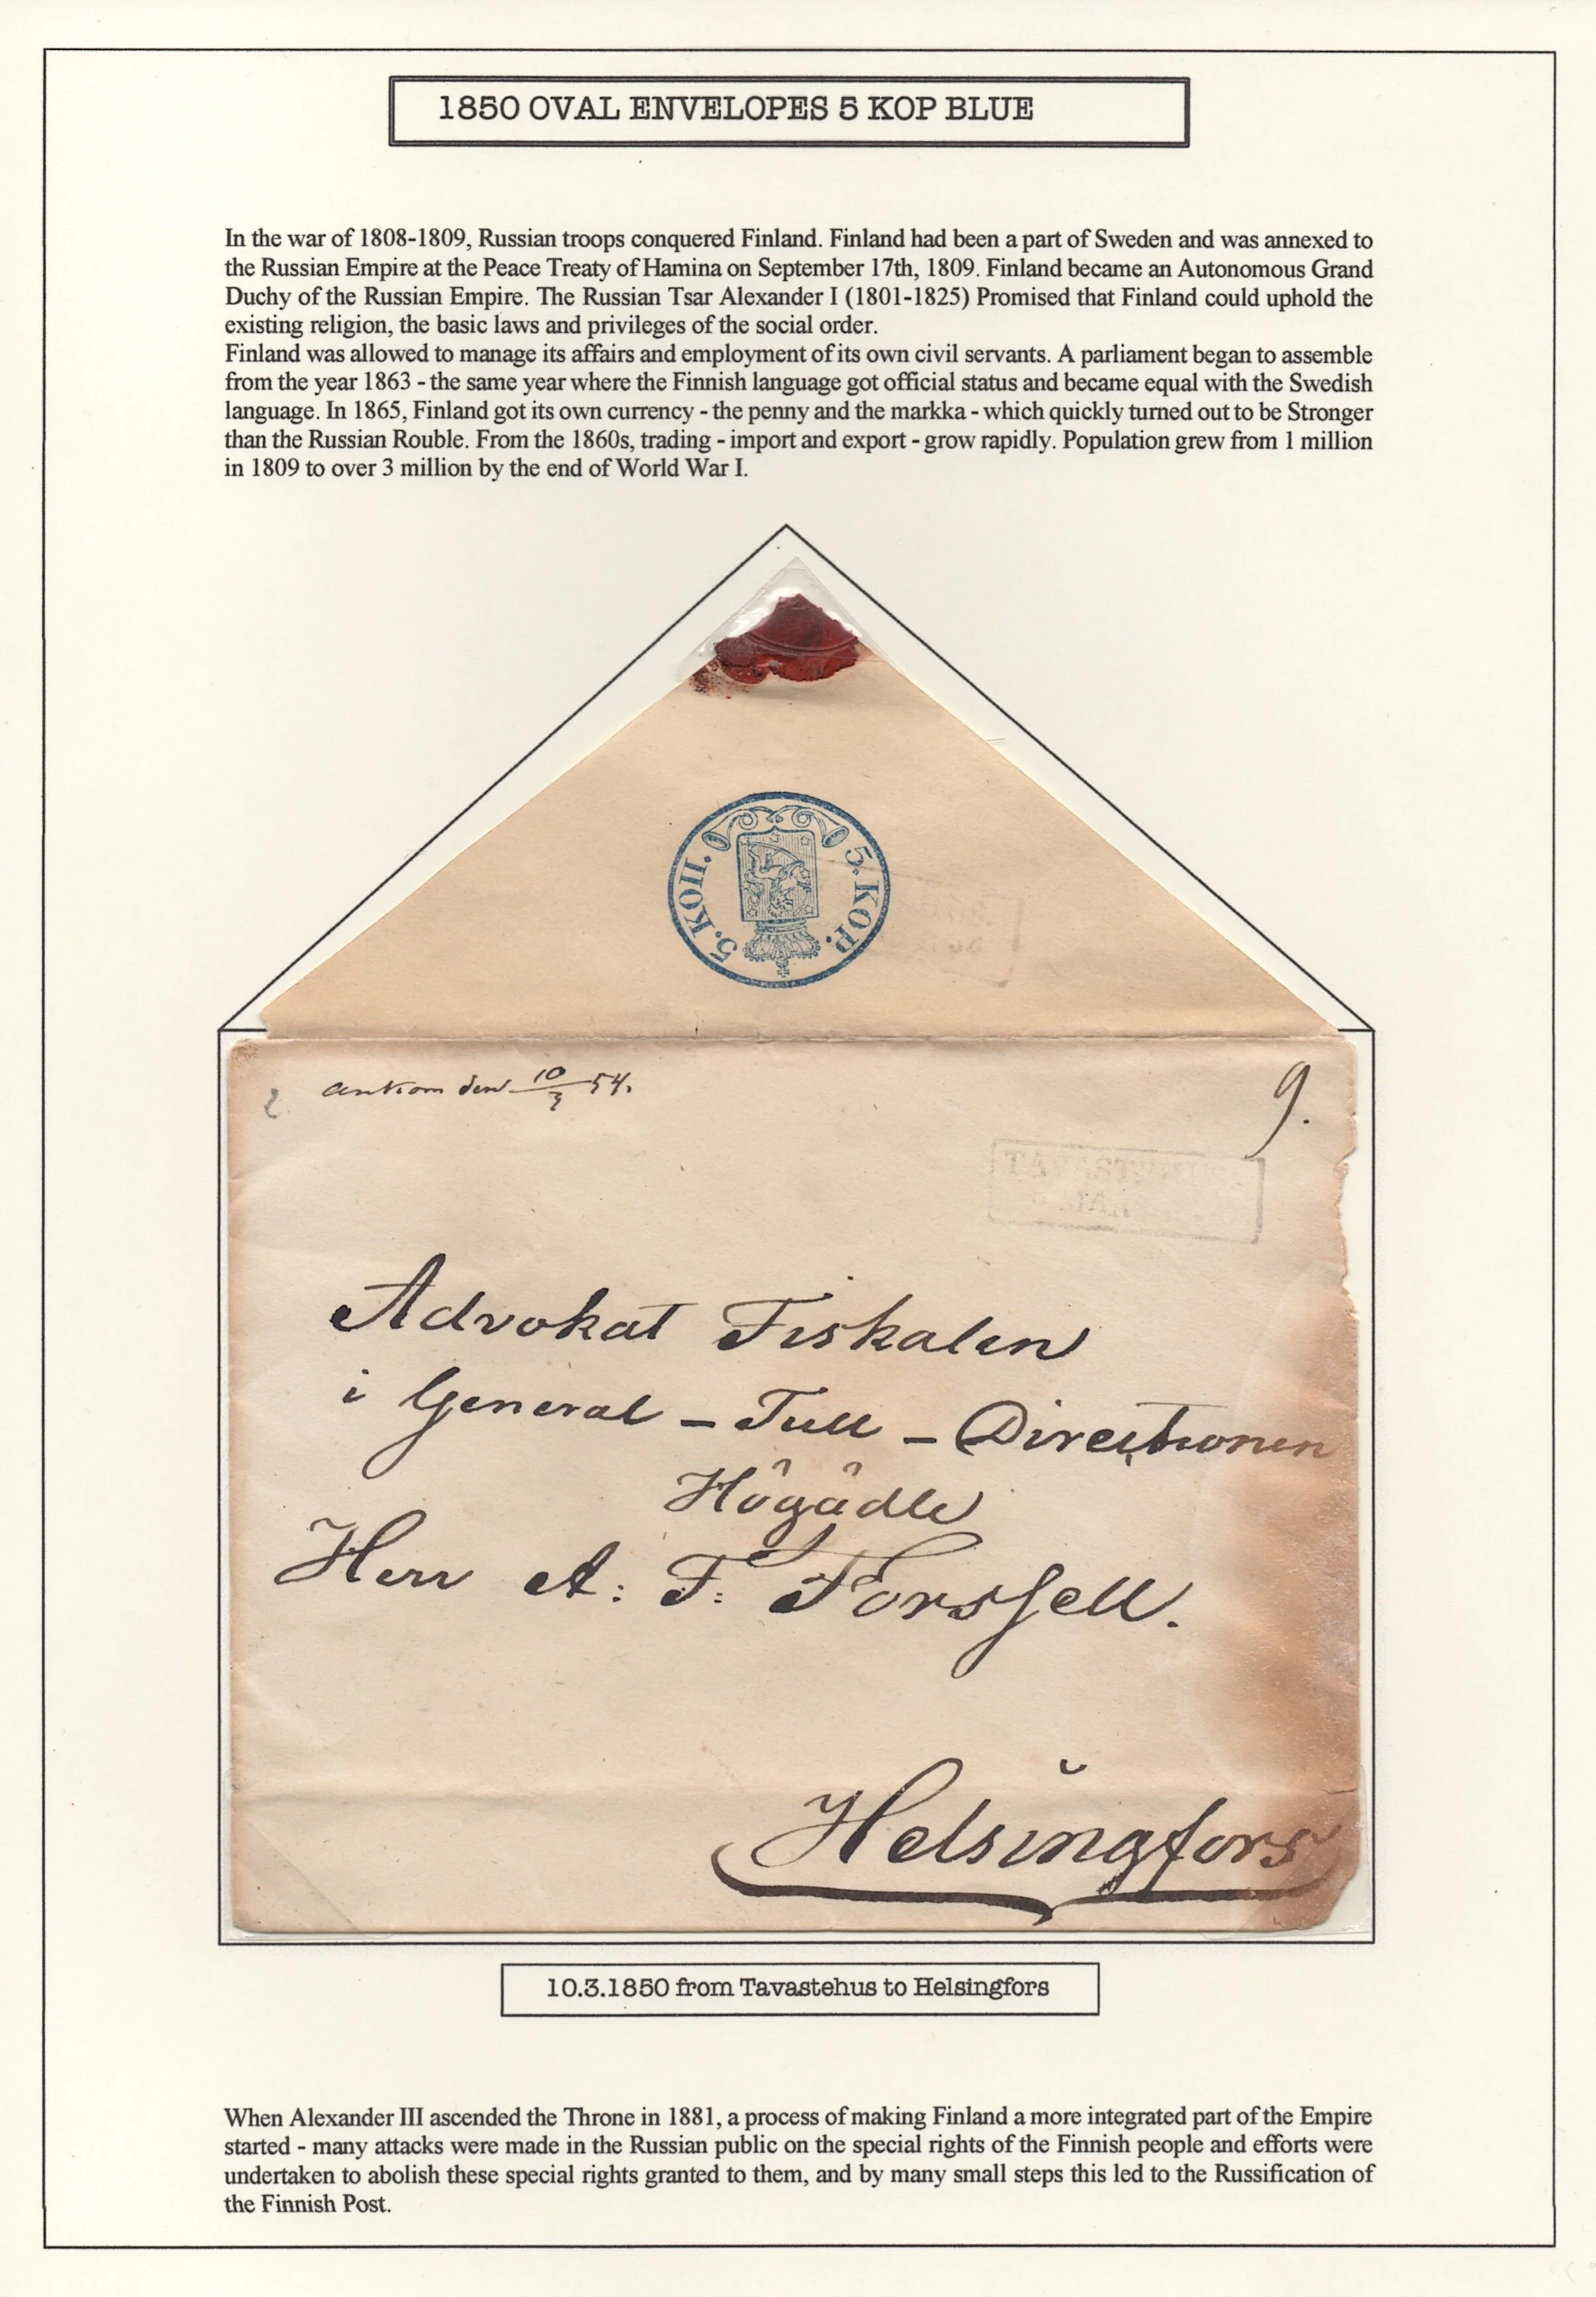 1850 OVAL ENVELOPES 5 KOP BLUE
In the war of 1808-1809, Russian troops conquered Finland. Finland had been a part of Sweden and was annexed to
the Russian Empire at the Peace Treaty of Hamina on September 17th, 1809. Finland became an Autonomous Grand
Duchy of the Russian Empire. The Russian Tsar Alexander I (1801-1825) Promised that Finland could uphold the
existing religion, the basic laws and privileges of the social order.
Finland was allowed to manage its affairs and employment of its own civil servants. A parliament began to assemble
from the year 1863 - the same year where the Finnish language got official status and became equal with the Swedish
language. In 1865, Finland got its own currency - the penny and the markka - which quickly turned out to be Stronger
than the Russian Rouble. From the 1860s, trading - import and export - grow rapidly. Population grew from 1 million
in 1809 to over 3 million by the end of World War I.
5. КОП. 5. KOP.
2 ankom den 10/3 54.
9.
TAVASTEHUS
Advokat Fiskalen
i General - Tull - Directionen
Högädle
Herr A: F: Forssell.
Helsingfors
10.3.1850 from Tavastehus to Helsingfors
When Alexander III ascended the Throne in 1881, a process of making Finland a more integrated part of the Empire
started - many attacks were made in the Russian public on the special rights of the Finnish people and efforts were
undertaken to abolish these special rights granted to them, and by many small steps this led to the Russification of
the Finnish Post.